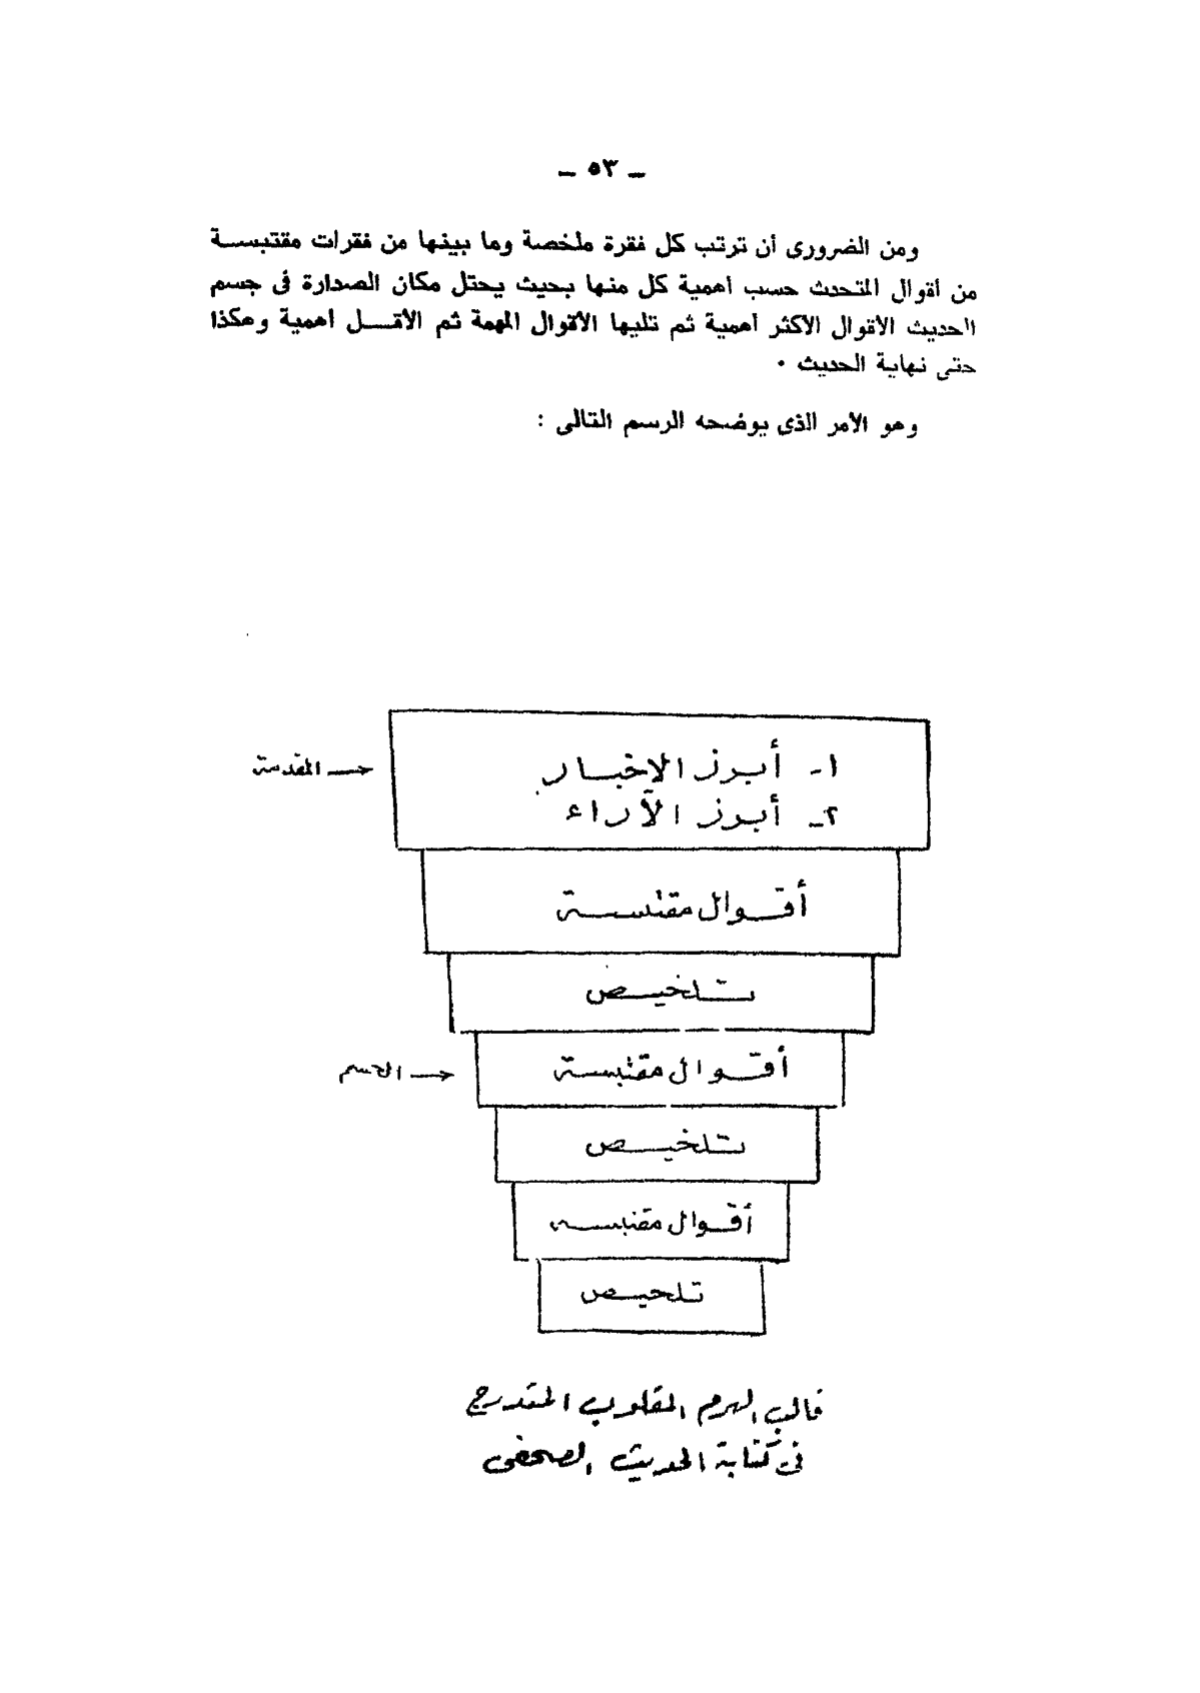 ــ ٥٣ ــ
ومن الضرورى أن ترتب كل فقرة ملخصة وما بينها من فقرات مقتبســة
من أقوال المتحدث حسب أهمية كل منها بحيث يحتل مكان الصدارة فى جسم
الحديث الأقوال الأكثر أهمية ثم تليها الأقوال المهمة ثم الأقــل أهمية وهكذا
حتى نهاية الحديث ٠
وهو الأمر الذى يوضحه الرسم التالى :
١- أبرز الاخبار
المقدمة
٢- أبرز الآراء
أقوال مقتبسة
تلخيص
أقوال مقتبسة
الجسم
تلخيص
أقوال مقتبسة
تلخيص
قالب الهرم المقلوب المتدرج
فى كتابة الحديث الصحفى